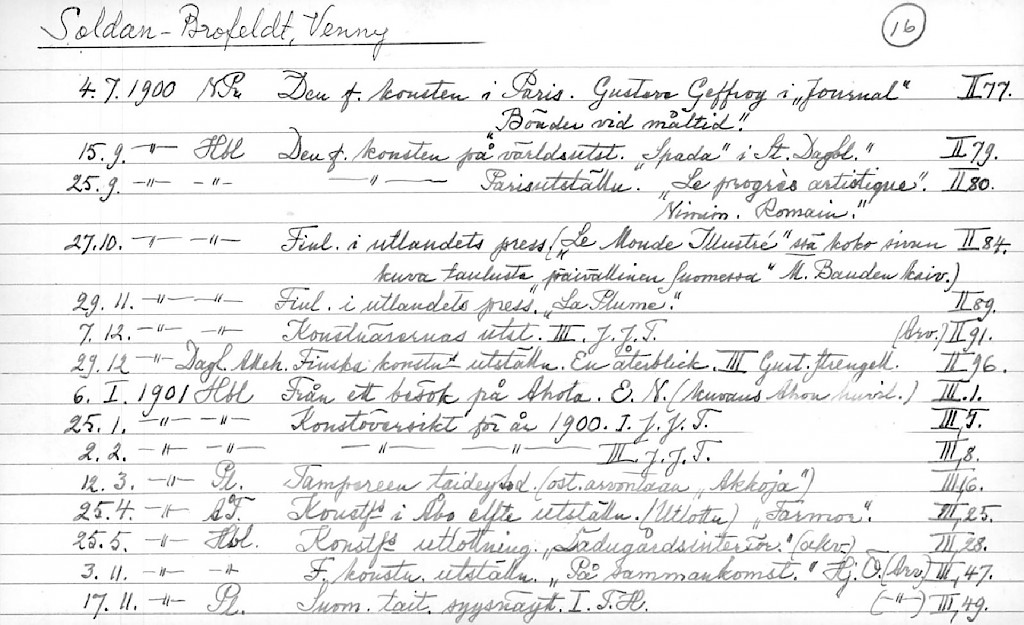 Soldan-Brofeldt, Venny 16
4.7.1900 N Pr Den f. konsten i Paris. Gustave Geffroy i „Journal" II 77.
„Bönder vid måltid".
15.9. -"- Hbl Den f. konsten på världsutst. „Spada" i St. Dagbl." II 79.
25.9. -"- -"- -"- Parisutställn. „Le progrès artistique". II 80.
Nimim. Romain."
27.10. -"- -"- Finl. i utlandets press. („Le Monde Illustré" koko sivun II 84.
kuva taulusta „päivällinen Suomessa" M. Bauden kaiv.)
29.11. -"- -"- Finl. i utlandets press. „La Plume". II 89.
7.12. -"- -"- Konstnärernas utst. III. J.J.T. (Arv.) II 91.
29.12 -"- Dagl. Finska konstn utställn. En återblick. III Gust. Strengell. II 96.
6. I. 1901 Hbl Från ett besök på Ahola. E. N. (kuvaus Ahon huvil.) III.1.
25.1. -"- -"- Konstöversikt för år 1900. I. J.J.T. III,7.
2.2. -"- -"- -"- -"- III. J.J.T. III,8.
12.3. -"- Pl. Tampereen taideyhd. (ost. arvontaan „Akkoja") III,16.
25.4. -"- ÅT. Konstfs i Åbo elfte utställn. (Utlottn) „Farmor". III,25.
25.5. -"- Hbl. Konstfs utlottning. „Ladugårdsinteriör." (akv.) III,28.
3.11. -"- -"- F. konstn. utställn. „På sammankomst." Hj. Ö. (Arv) III,47.
17.11. -"- Pl. Suom. tait. syysnäyt. I. T.H. (-"-) III,49.